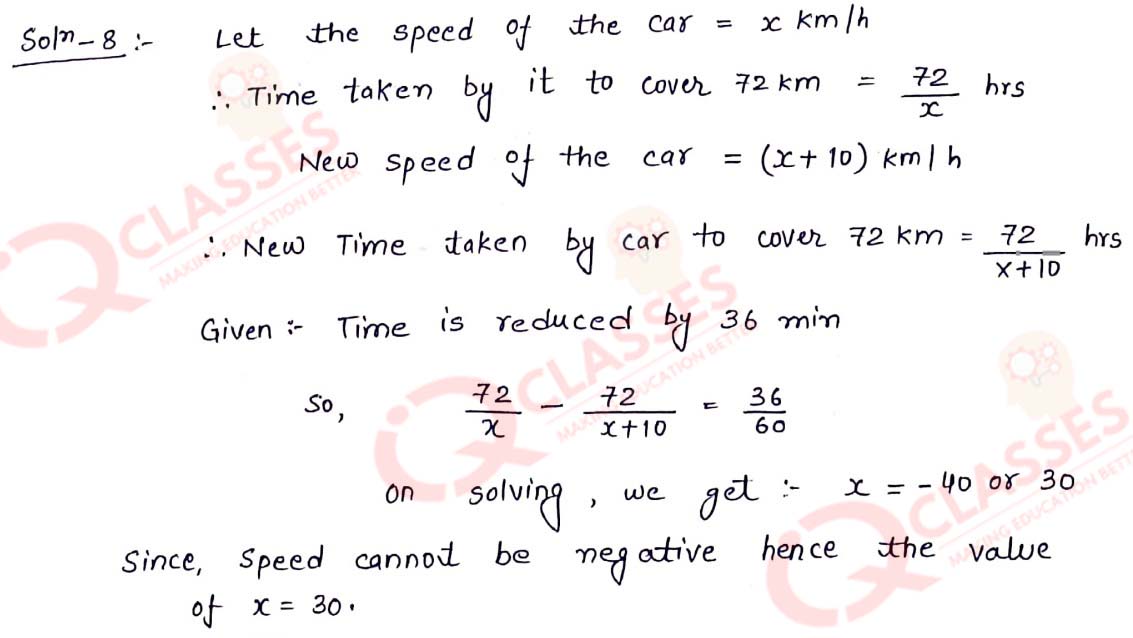 Solⁿ-8 :- Let the speed of the car = x km/h
∴ Time taken by it to cover 72 km = 72/x hrs
New speed of the car = (x+10) km/h
∴ New Time taken by car to cover 72 km = 72/(x+10) hrs
Given :- Time is reduced by 36 min
So, 72/x - 72/(x+10) = 36/60
on solving, we get :- x = -40 or 30
Since, Speed cannot be negative hence the value
of x = 30.
IQ CLASSES
MAKING EDUCATION BETTER
IQ CLASSES
MAKING EDUCATION BETTER
IQ CLASSES
MAKING EDUCATION BETTER